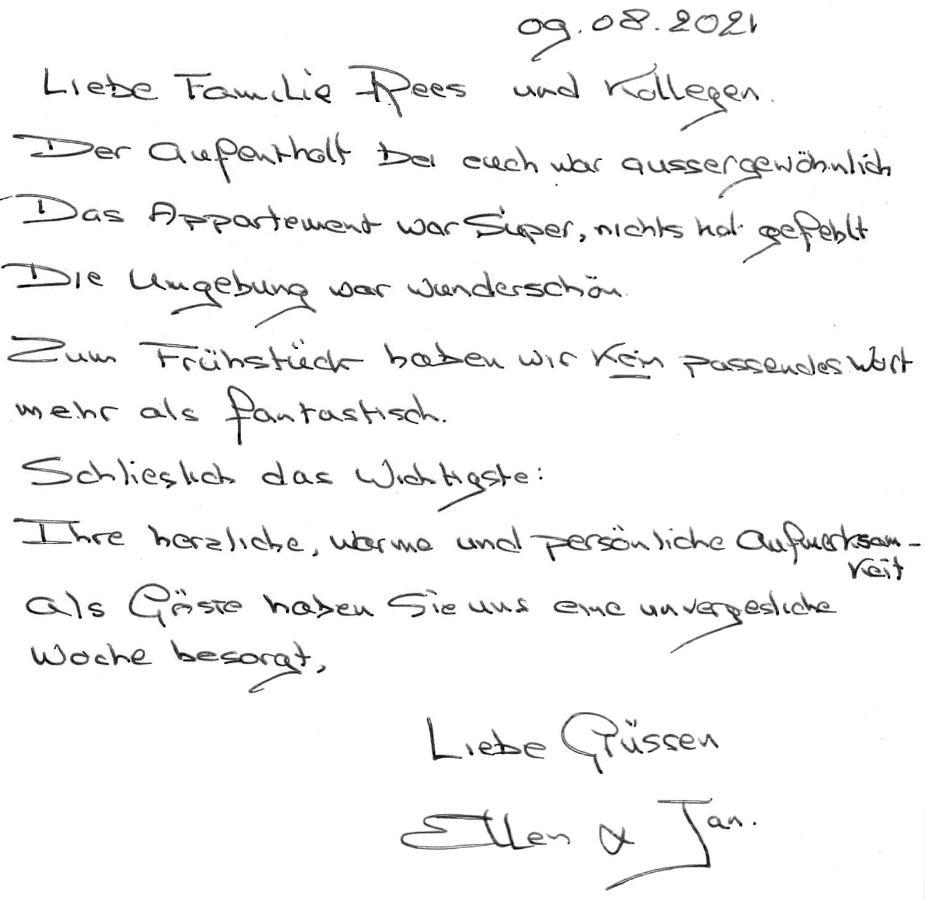 09.08.2021
Liebe Familie Rees und Kollegen.
Der Aufenthalt bei euch war aussergewöhnlich
Das Appartement war Super, nichts hat gefehlt
Die Umgebung war wunderschön.
Zum Frühstück haben wir kein passendes Wort
mehr als fantastisch.
Schlieslich das Wichtigste:
Ihre herzliche, warme und persönliche Aufmerksam-
keit
als Gäste haben Sie uns eine unvergesliche
Woche besorgt,
Liebe Grüssen
Ellen & Jan.